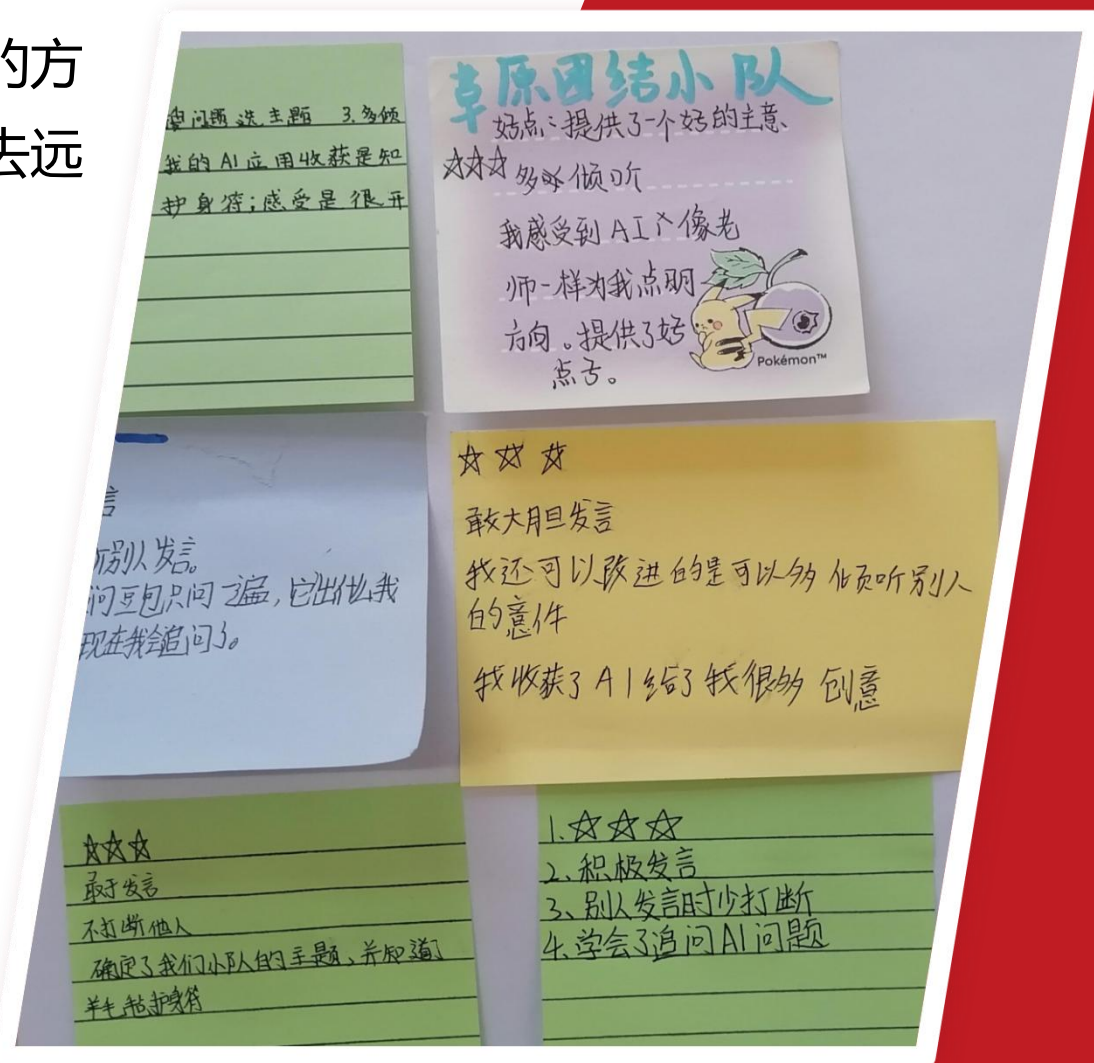 的方
去远
问题选主题 3.多倾
我的AI应用收获是知
护身符;感受是很开
草原团结小队
好点:提供了一个好的主意、
☆☆☆ 多 倾听
我感受到AI 像老
师一样为我点明
方向。提供了好
点子。
Pokémon™
言
听别人发言。
问豆包只问一遍,它出什么我
现在我会追问了。
☆☆☆
敢大胆发言
我还可以改进的是可以多倾听别人
的意件
我收获了AI给了我很多创意
☆☆☆
敢于发言
不打断他人
确定了我们小队的主题、并知道了
羊毛毡护身符
1.☆☆☆
2、积极发言
3、别人发言时少打断
4.学会了追问AI问题